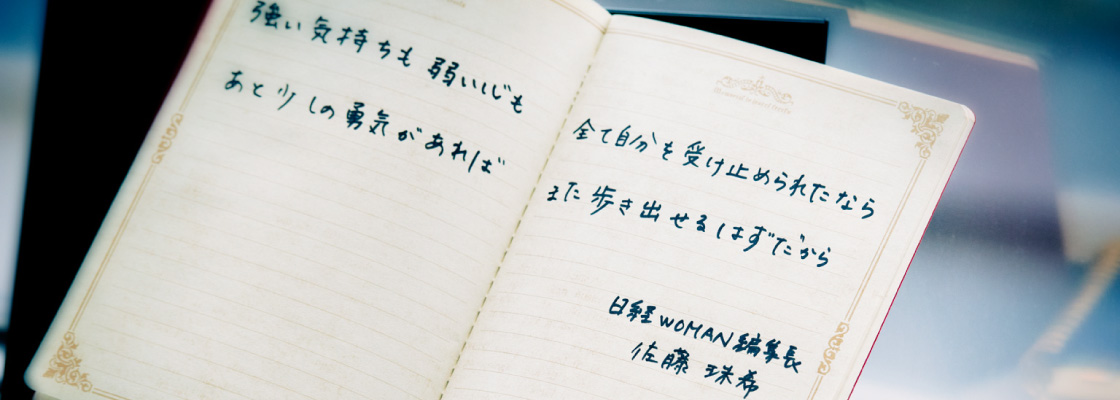 強い気持ちも 弱い心も
あと少しの勇気があれば
全て自分を受け止められたなら
また歩き出せるはずだから
日経WOMAN編集長
佐藤 珠希